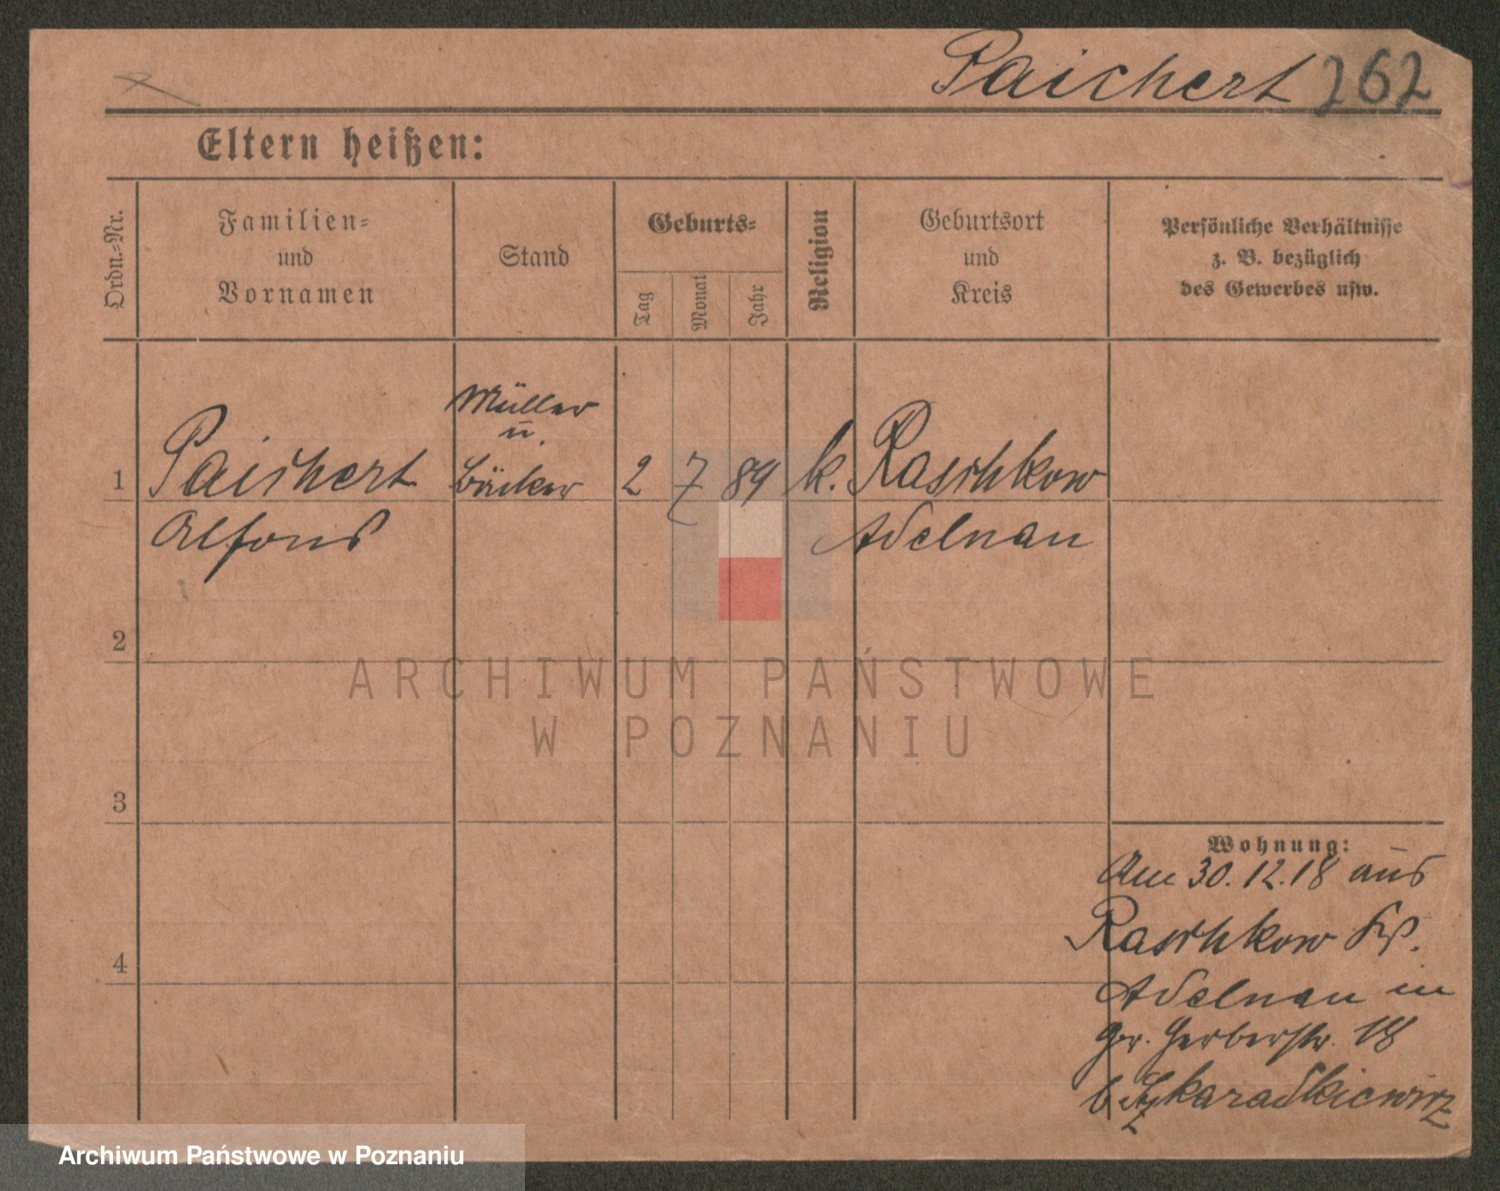 Paichert 262
Eltern heißen:
Ordn.-Nr.
Familien-
und
Vornamen
Stand
Geburts-
Tag
Monat
Jahr
Religion
Geburtsort
und
Kreis
Persönliche Verhältnisse
z. B. bezüglich
des Gewerbes usw.
1
Paichert
Alfons
Müller
u.
Bäcker
2 7 89 k. Raschkow
Adelnau
2
3
4
Wohnung:
Am 30.12.18 aus
Raschkow Krs.
Adelnau in
Gr. Gerberstr. 18
b.
ARCHIWUM PAŃSTWOWE
W POZNANIU
Archiwum Państwowe w Poznaniu